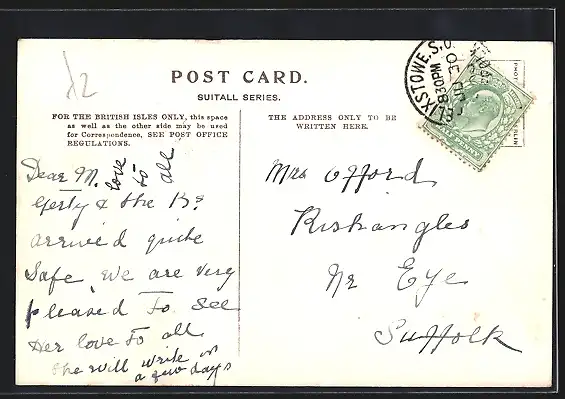 POST CARD.
SUITALL SERIES.
FOR THE BRITISH ISLES ONLY, this space
as well as the other side may be used
for Correspondence, SEE POST OFFICE
REGULATIONS.
THE ADDRESS ONLY TO BE
WRITTEN HERE.
FELIXSTOWE.S.O
8.30PM
Dear M.
love to all
Gerty & the Bs
arrived quite
safe, we are very
pleased to see
Her love to all
she will write in
a few days
Mrs Offord
Rishangles
Nr Eye
Suffolk